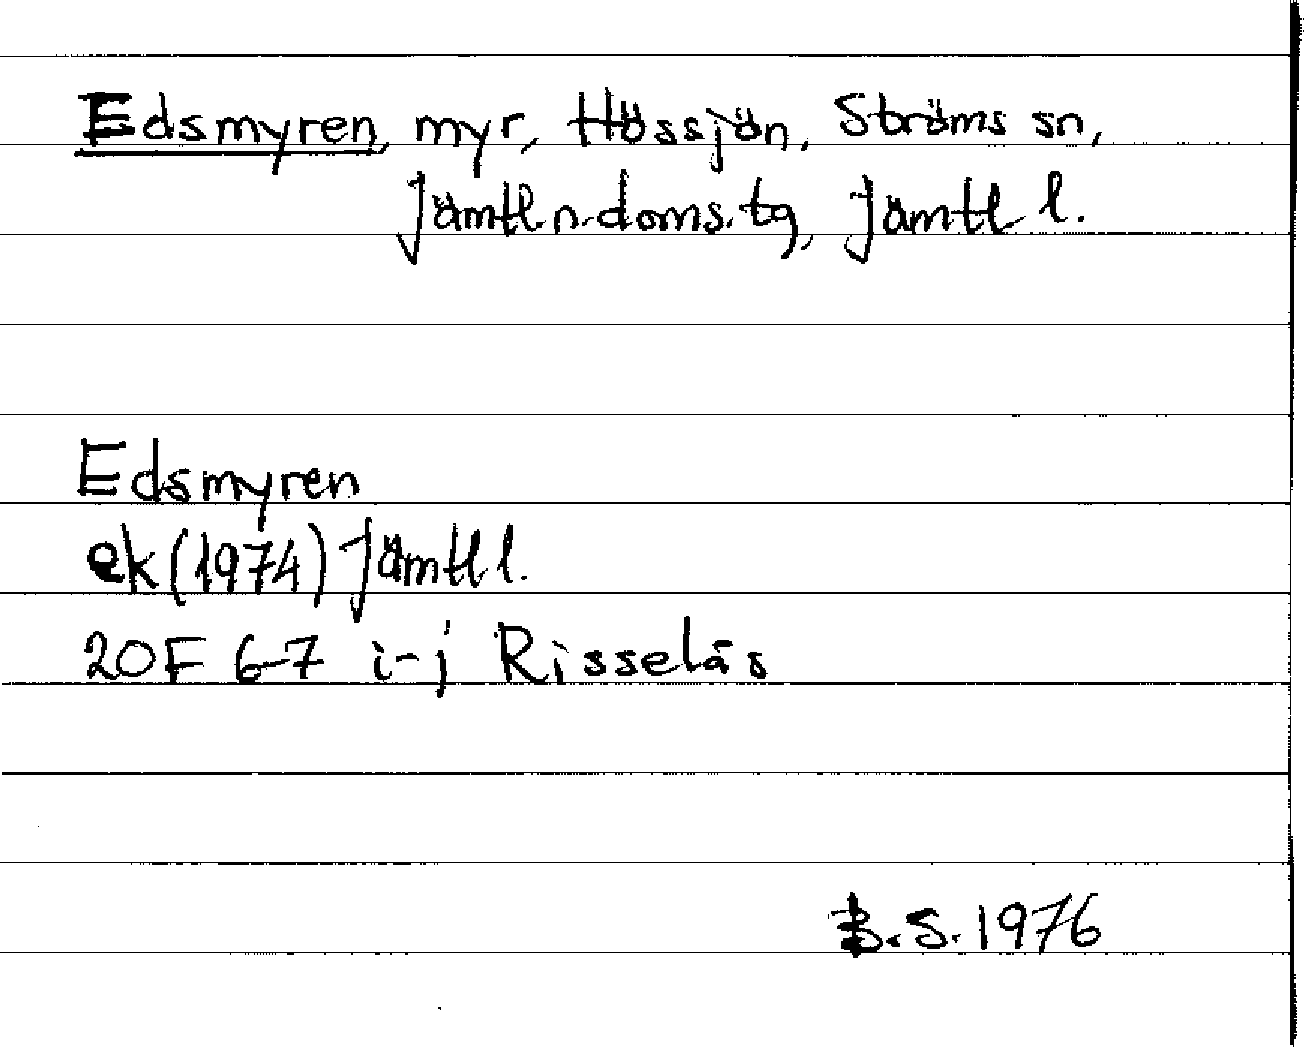 Edsmyren, myr, Hössjön, Ströms sn,
Jämtl. n. doms. tg, Jämtl l.
Edsmyren
ek (1974) Jämtl l.
20F 6-7 i-j Risselås
B.S. 1976